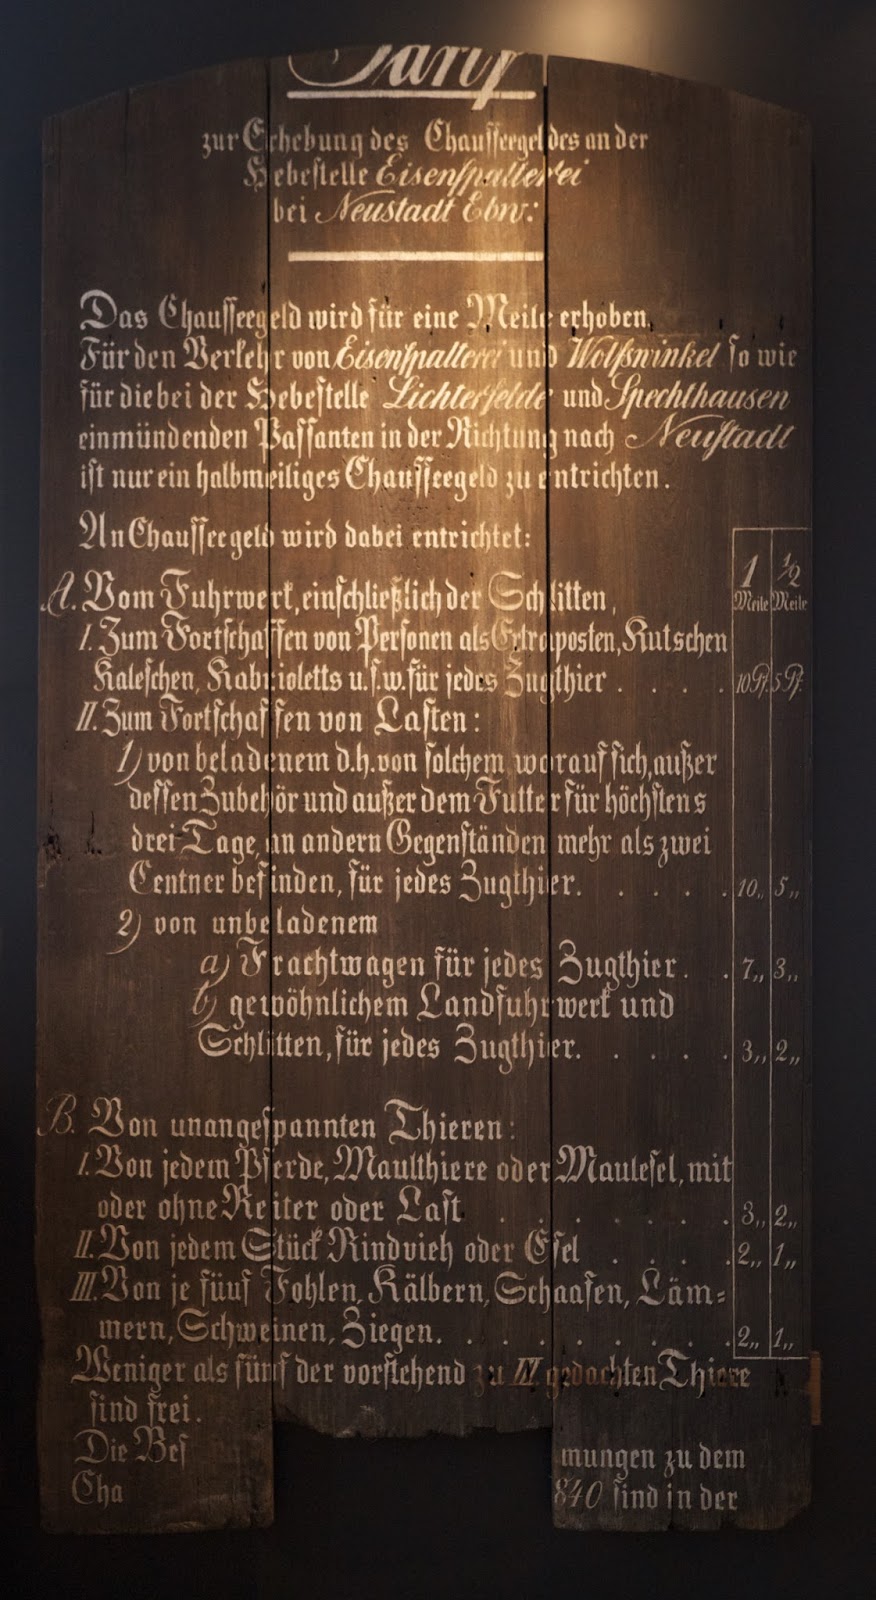 Tarif
zur Erhebung des Chausseegeldes an der
Hebestelle Eisenspalterei
bei Neustadt Ebw:
Das Chausseegeld wird für eine Meile erhoben.
Für den Verkehr von Eisenspalterei und Wolfswinkel so wie
für die bei der Hebestelle Lichterfelde und Spechthausen
einmündenden Passanten in der Richtung nach Neustadt
ist nur ein halbmeiliges Chausseegeld zu entrichten.
An Chausseegeld wird dabei entrichtet:
1 Meile ½ Meile
A. Vom Fuhrwerk, einschließlich der Schlitten,
I. Zum Fortschaffen von Personen als Extraposten, Kutschen
Kaleschen, Kabrioletts u.s.w. für jedes Zugthier . . . . 10 Pf. 5 Pf.
II. Zum Fortschaffen von Lasten:
1) von beladenem d.h. von solchem, worauf sich, außer
dessen Zubehör und außer dem Futter für höchstens
drei Tage, an andern Gegenständen mehr als zwei
Centner befinden, für jedes Zugthier. . . . . 10 „ 5 „
2) von unbeladenem
a) Frachtwagen für jedes Zugthier. . 7 „ 3 „
b) gewöhnlichem Landfuhrwerk und
Schlitten, für jedes Zugthier. . . . . 3 „ 2 „
B. Von unangespannten Thieren:
I. Von jedem Pferde, Maulthiere oder Maulesel, mit
oder ohne Reiter oder Last . . . . . . . 3 „ 2 „
II. Von jedem Stück Rindvieh oder Esel . . . . 2 „ 1 „
III. Von je fünf Fohlen, Kälbern, Schaafen, Läm=
mern, Schweinen, Ziegen. . . . . . . . . 2 „ 1 „
Weniger als fünf der vorstehend zu IV gedachten Thiere
sind frei.
Die Bes mungen zu dem
Cha 840 sind in der